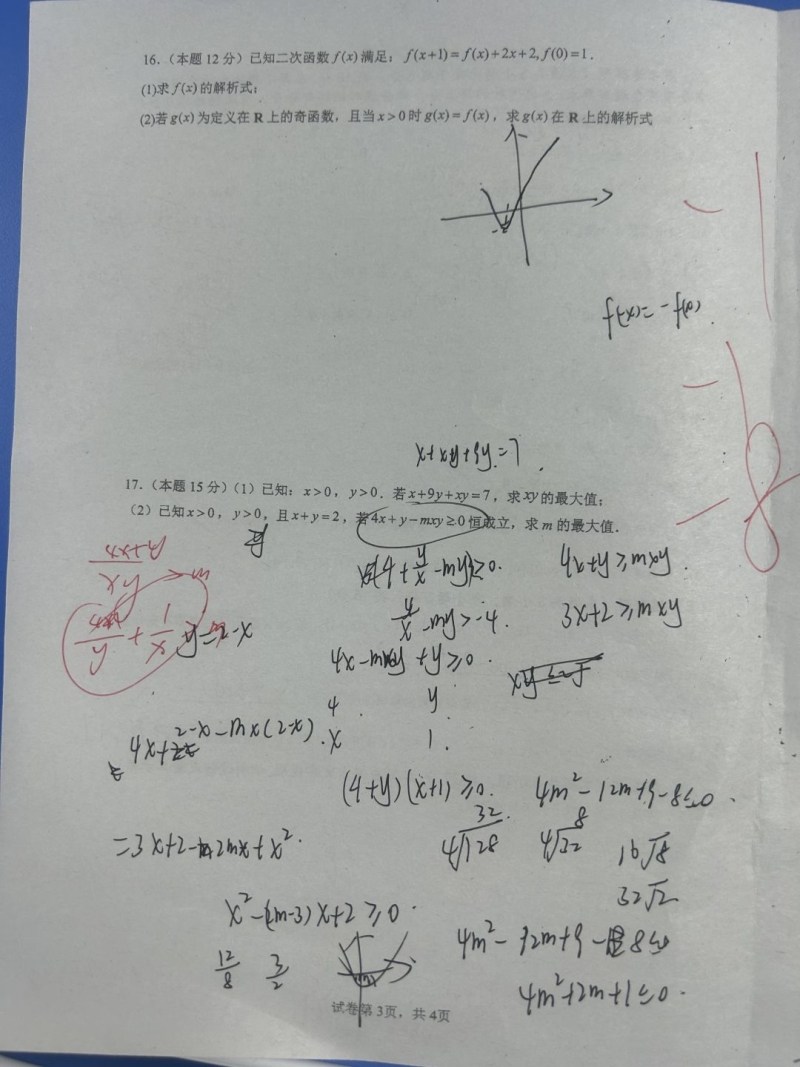 16.（本题 12 分）已知二次函数 f(x) 满足：f(x+1)=f(x)+2x+2, f(0)=1.
(1)求 f(x) 的解析式；
(2)若 g(x) 为定义在 R 上的奇函数，且当 x>0 时 g(x)=f(x)，求 g(x) 在 R 上的解析式
-1
f(-x)=-f(x)
-8
x+xy+9y=7.
17.（本题 15 分）（1）已知：x>0，y>0．若 x+9y+xy=7，求 xy 的最大值；
（2）已知 x>0，y>0，且 x+y=2，若 4x+y-mxy≥0 恒成立，求 m 的最大值．
x(4+y/x-my)≥0. 4x+y≥mxy.
y/x-my>-4. 3x+2≥mxy
y=2-x
4x-mxy+y≥0.
4 y
x 1.
4x+2-x-mx(2-x).
(4+y)(x+1)≥0. 4m²-12m+9-8≤0.
32 8
=3x+2-2mx+x². 4√128 4√32 16√8
32√2
x²-(2m-3)x+2≥0.
12/8 3/2
4m²-12m+9-8≤0
4m²+2m+1≤0.
试卷第 3页，共 4页